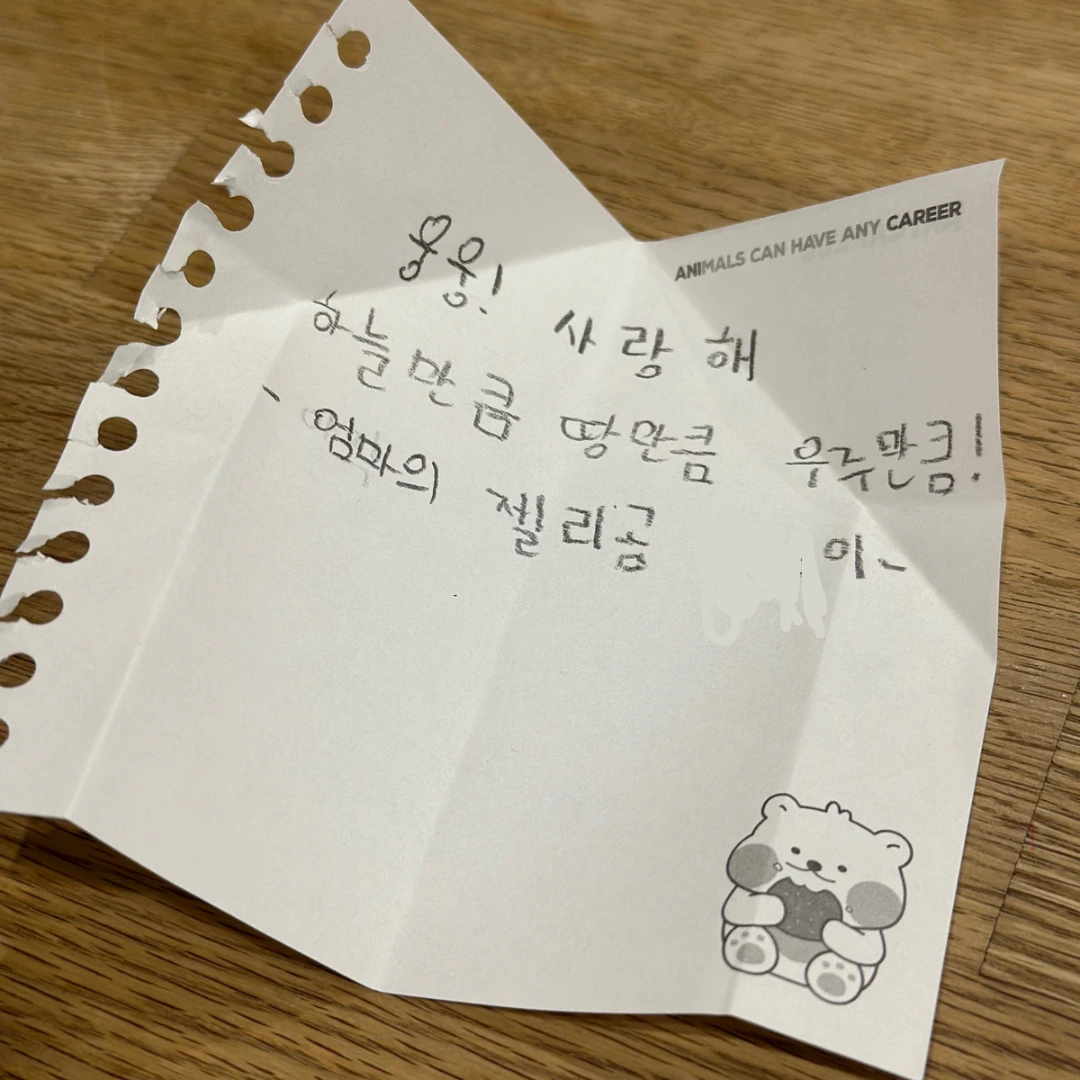 ANIMALS CAN HAVE ANY CAREER
사랑해
하늘만큼 땅만큼 우주만큼!
- 엄마의 젤리곰 이-